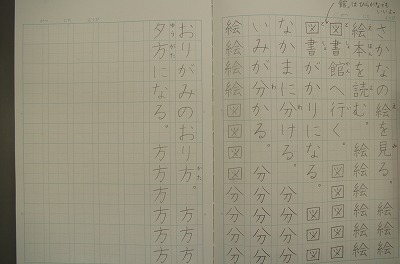 館はひらがなでもいいよ。
さかなの絵を見る。絵絵絵
絵本を読む。絵絵絵絵絵絵
図書館へ行く。図図図図図
図書がかりになる。図図図
なかまに分ける。分分分分
いみが分かる。分分分分分
絵絵絵絵図図図図分分分分
おりがみのおり方。方方方
夕方になる。方方方方方方